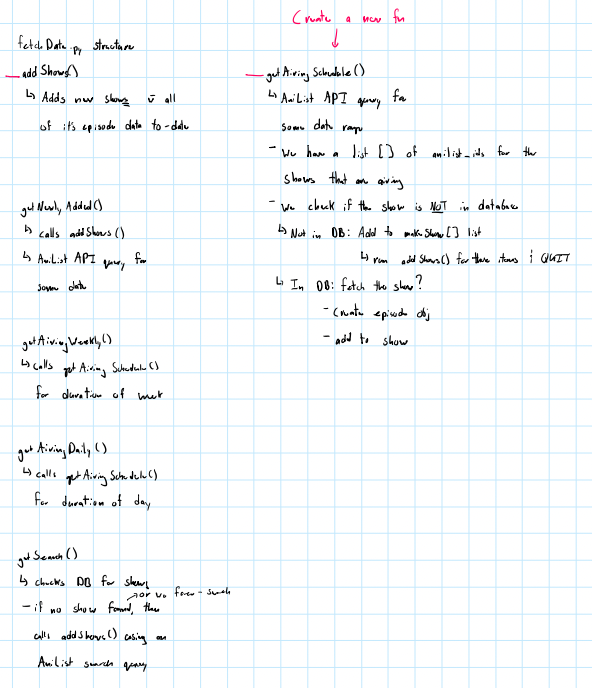 Create a new fn
fetchData.py structure
addShows()
↳ Adds new shows w̄ all
of it's episode data to-date
getNewlyAdded()
↳ calls addShows()
↳ AniList API query for
some date
getAiringWeekly()
↳ calls getAiringSchedule()
for duration of week
getAiringDaily()
↳ calls getAiringSchedule()
for duration of day
getSearch()
↳ checks DB for shows
→ or vo force-search
- if no show found, then
calls addShows() using an
AniList search query
getAiringSchedule()
↳ AniList API query for
some date range
- We have a list [] of anilist_ids for the
shows that are airing
- We check if the show is NOT in database
↳ Not in DB: Add to makeShow[] list
↳ run addShows() for these items & QUIT
↳ In DB: fetch the show?
- Create episode obj
- add to show